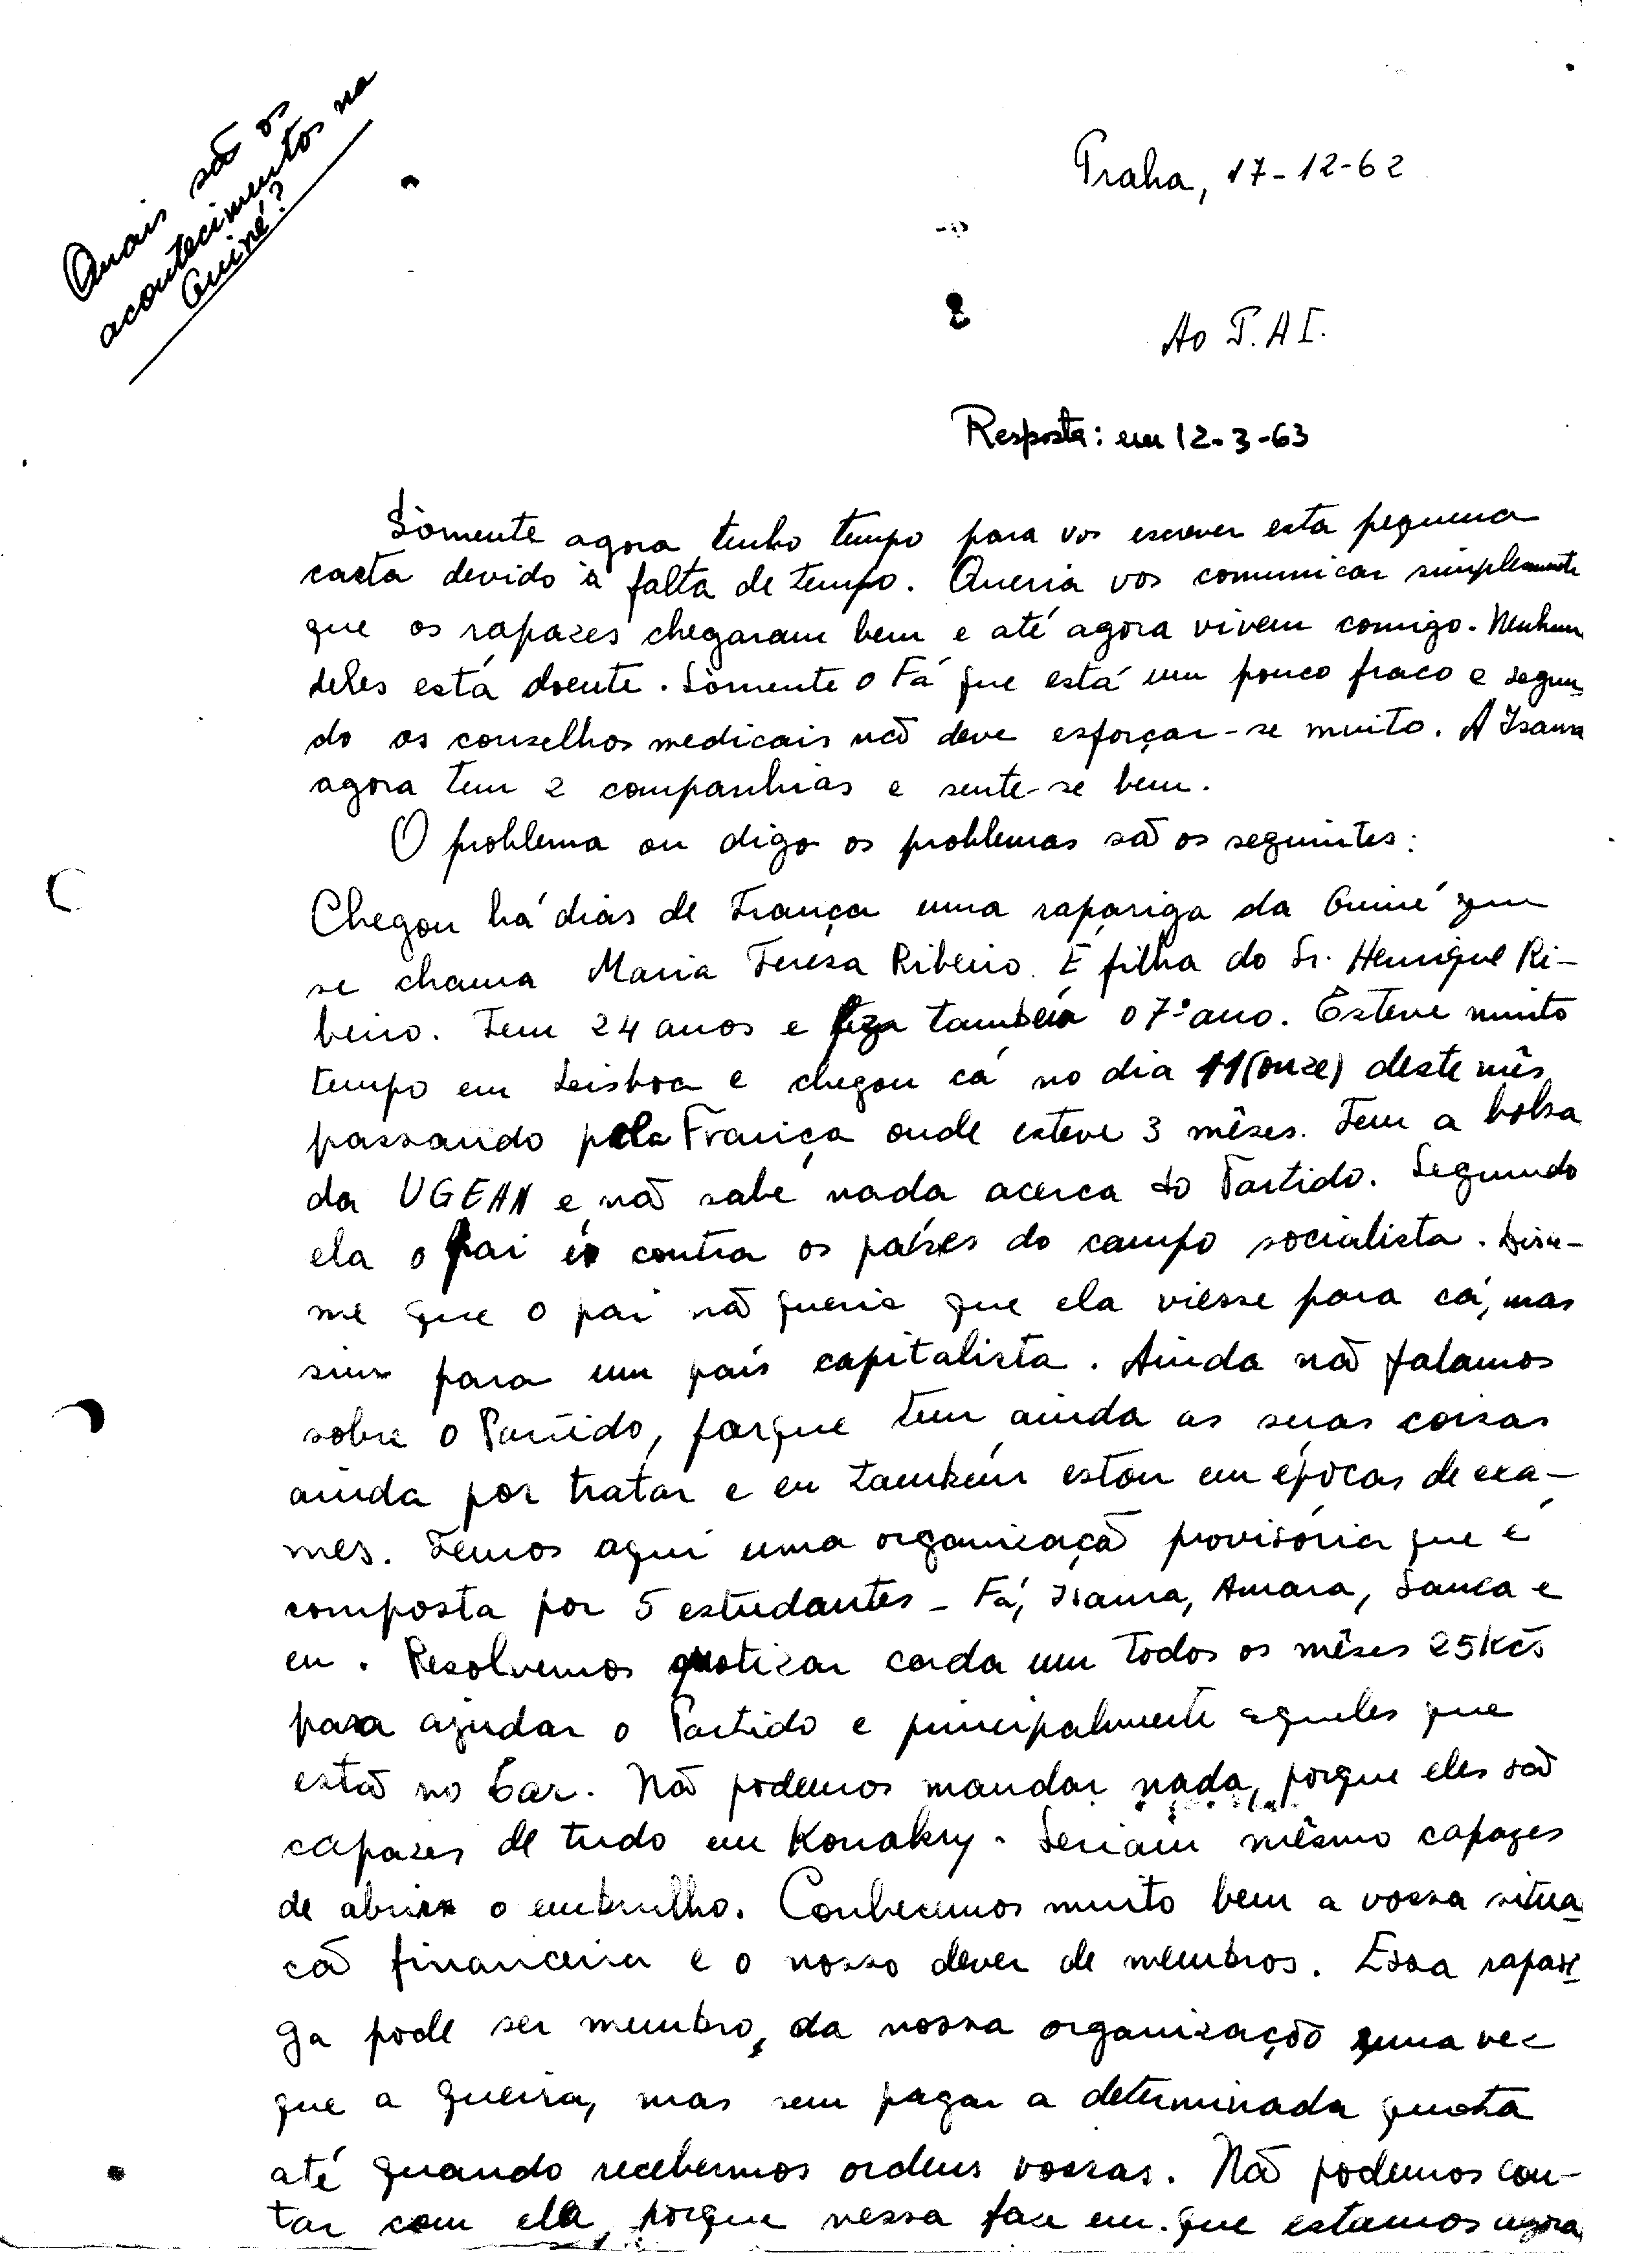 Quais são os
acontecimentos na
Guiné?
Praha, 17-12-62
Ao P.A I.
Resposta: em 12-3-63
Sòmente agora tenho tempo para vos escrever esta pequena
carta devido à falta de tempo. Queria vos comunicar simplesmente
que os rapazes chegaram bem e até agora vivem comigo. Nenhum
deles está doente. Sòmente o Fá que está um pouco fraco e segun-
do os conselhos medicais não deve esforçar-se muito. A Isaura
agora tem 2 companhias e sente-se bem.
O problema ou digo os problemas são os seguintes:
Chegou há dias de França uma rapariga da Guiné que
se chama Maria Teresa Ribeiro. É filha do Sr. Henrique Ri-
beiro. Tem 24 anos e fez também o 7º ano. Esteve muito
tempo em Leisboa e chegou cá no dia 11 (onze) deste mês
passando pela França onde esteve 3 mêses. Tem a bolsa
da UGEAN e não sabe nada acerca do Partido. Segundo
ela o pai é contra os países do campo socialista. Disse-
me que o pai não queria que ela viesse para cá, mas
sim para um país capitalista. Ainda não falamos
sobre o Partido, porque tem ainda as suas coisas
ainda por tratar e eu também estou em épocas de exa-
mes. Temos aqui uma organização provisória que é
composta por 5 estudantes - Fá, Isaura, Amara, Sanca e
eu. Resolvemos quotizar cada um todos os mêses 25Kčs
para ajudar o Partido e principalmente aqueles que
estão no Lar. Não podemos mandar nada, porque eles são
capazes de tudo em Konakry. Seriam mêsmo capazes
de abrir o embrulho. Conhecemos muito bem a vossa situa-
ção financeira e o nosso dever de membros. Essa rapari-
ga pode ser membro, da nossa organização uma vez
que a queira, mas sem pagar a determinada quota
até quando recebermos ordens vossas. Não podemos con-
tar com ela, porque nessa fase em que estamos agora,